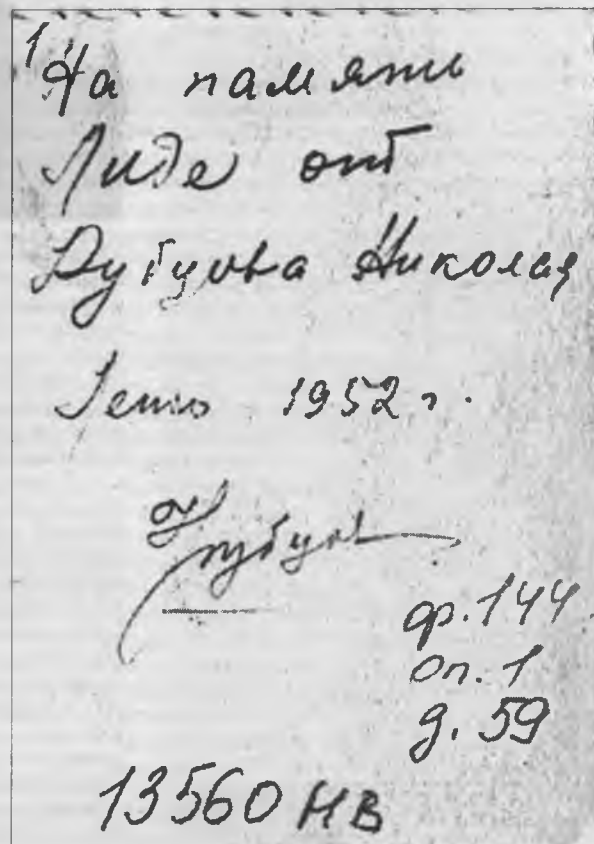 На память
Лиде от
Рубцова Николая
1952 г.
Рубцов
ф. 144
оп. 1
д. 59
13560 НВ